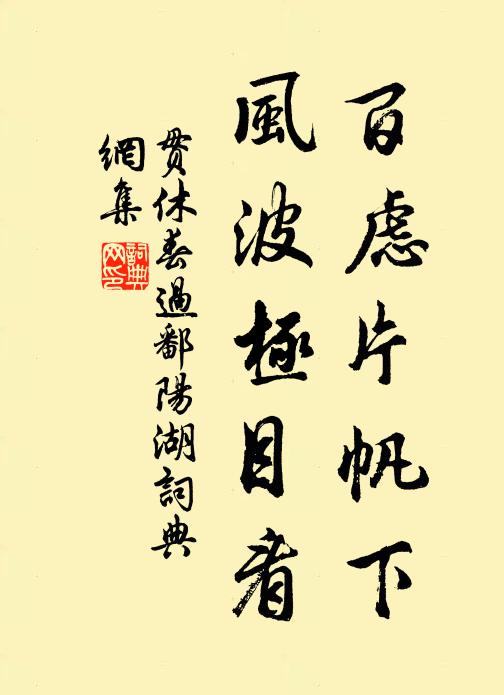 百慮片帆下
風波極目看
貫休春過鄱陽湖詞典
網集
詞典網印